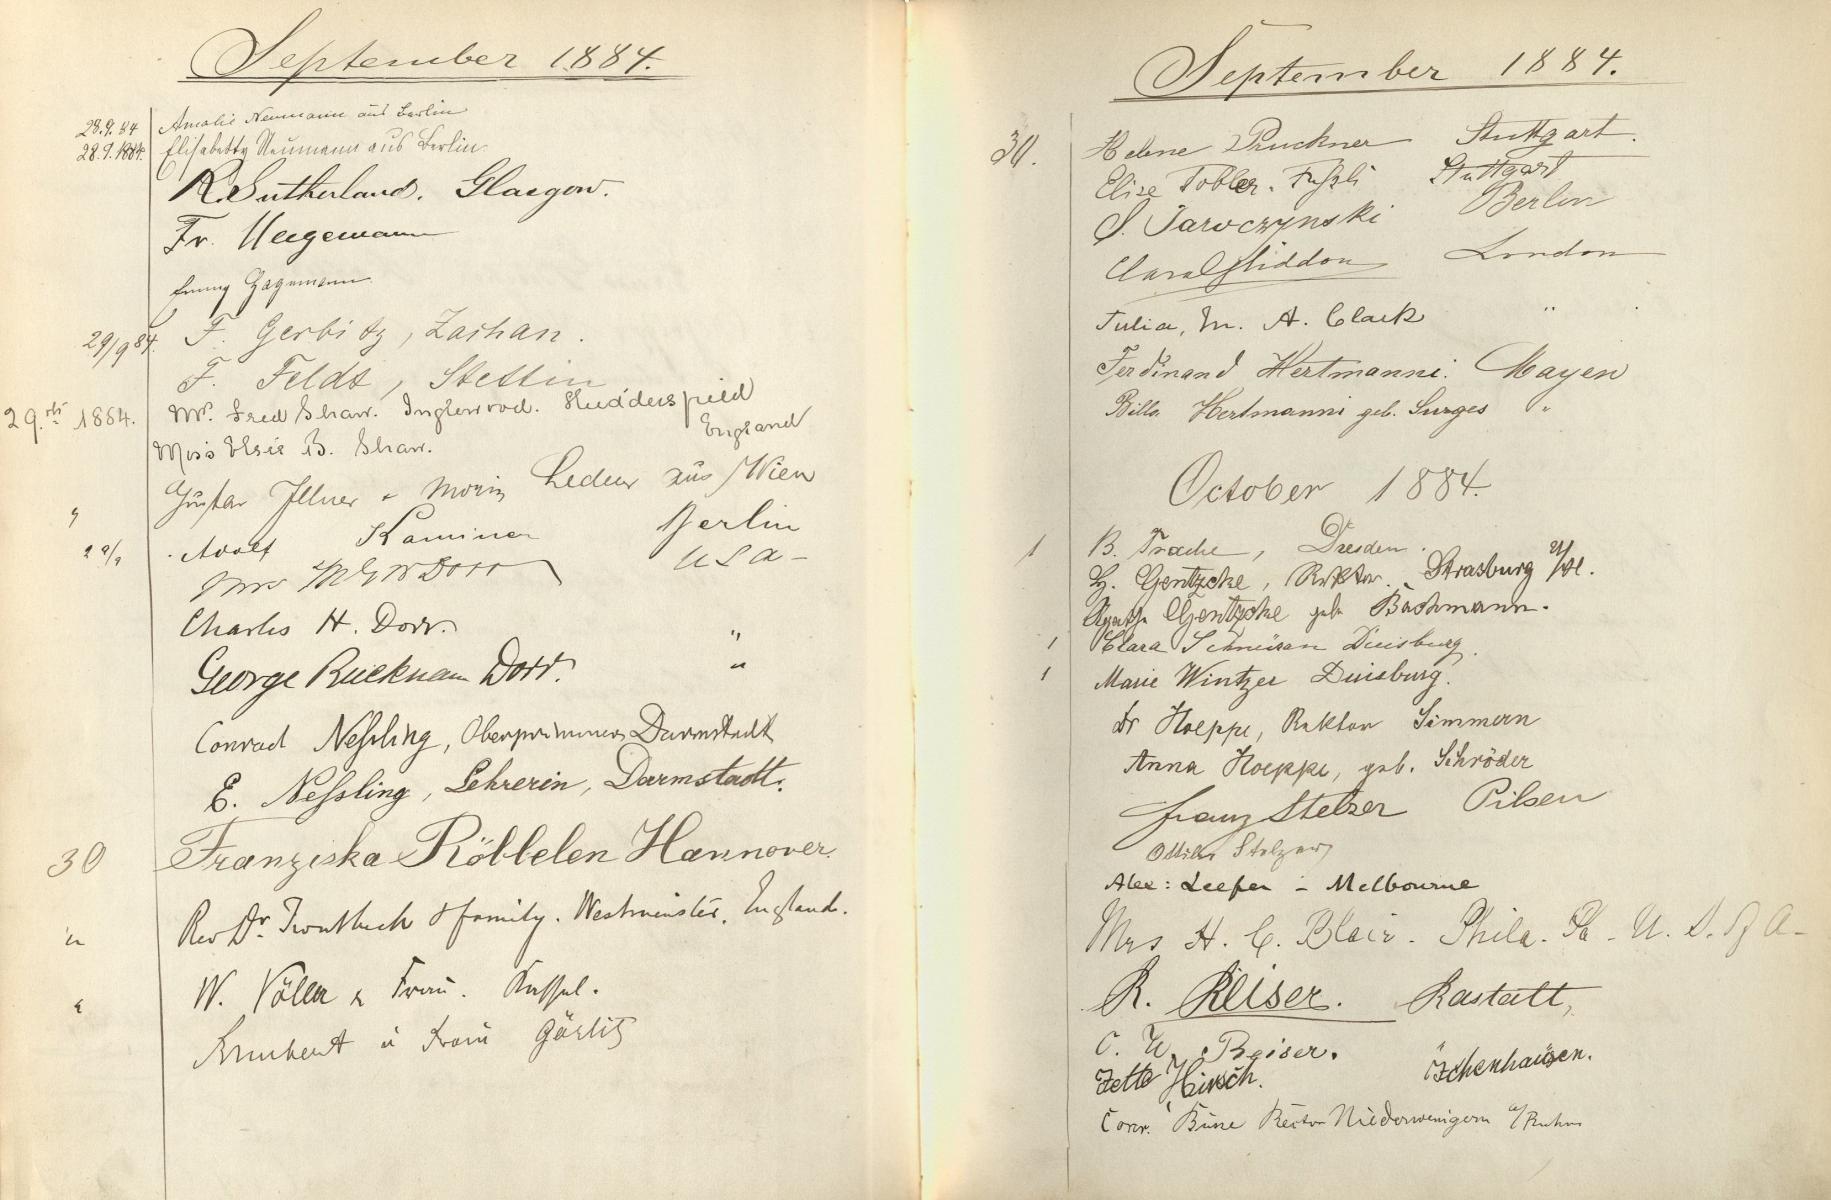 September 1884.
28.9.84 Amalie Neumann aus Berlin
28.9.1884. Elisabeth Neumann aus Berlin.
R. Sutherland. Glasgow.
Fr. Hegemann
Emmy Hegemann
29/9 84. F. Gerbitz, Zachan.
F. Feldt, Stettin
29.th 1884. Mr. Fred Shaw. Inglewood. Huddersfield
England
Miss Elsie B. Shaw.
Gustav Illner & Moriz Lederer aus Wien
" Adolf Kaminer Berlin
29/9 Mrs M G W Dorr U S A -
Charles H. Dorr. "
George Bucknam Dorr. "
Conrad Neßling, Oberprimaner Darmstadt
E. Neßling, Lehrerin, Darmstadt.
30 Franziska Röbbelen Hannover.
" Rev Dr. Troutbeck & family. Westminster. England.
" W. Völler & Frau. Kassel.
u Frau Görlitz
September 1884.
30. Helene Pruckner Stuttgart.
Elise Tobler. Füßli Stuttgart
S. Jaroczynski Berlin
Clara Gliddon London
Julia, M. A. Clack "
Ferdinand Hertmanni. Mayen
Billa Hertmanni geb. Surges "
October 1884.
1 B. Trache, Dresden.
H. Gentzcke, Rektor. Strasburg U/M.
Agathe Gentzcke geb. Bachmann.
1 Clara Duisburg.
1 Marie Wintzer Duisburg.
Dr Hoeppe, Rektor Simmern
Anna Hoeppe, geb. Schröder
Franz Stelzer Pilsen
Ottilie Stelzer
Alex: Leeper - Melbourne
Mrs H. C. Blair. Phila. Pa - U. S. of A -
R. Reiser. Rastatt,
C. W. Reiser.
Jette Hirsch. Ichenhausen.
Conr. Büne Rector Niederwenigern a/Ruhr